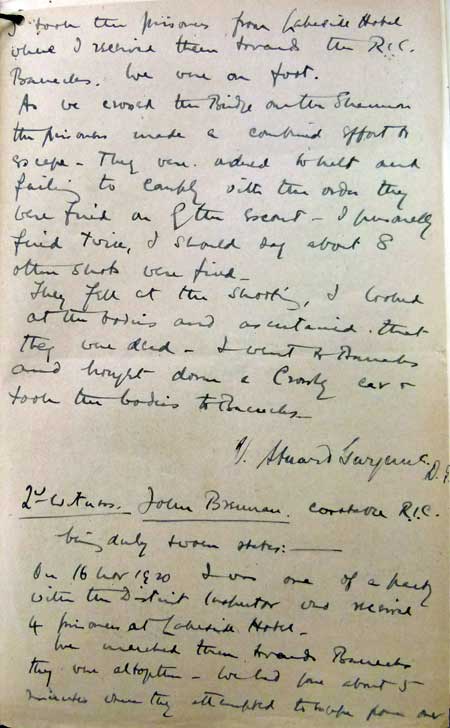 I took the prisoners from Lakeside Hotel
where I received them towards the R.I.C.
Barracks. We were on foot.
As we crossed the Bridge over the Shannon
the prisoners made a combined effort to
escape - They were ordered to halt and
failing to comply with the order they
were fired on by the escort - I personally
fired twice, I should say about 8
other shots were fired -
They fell at the shooting, I looked
at the bodies and ascertained that
they were dead - I went to Barracks
and brought down a Crossley car &
took the bodies to Barracks -
D.I.
2nd Witness. John Brennan. constable R.I.C.
being duly sworn states: -
On 16 Nov 1920 I was one of a party
with the District Inspector who received
4 prisoners at Lakeside Hotel -
We marched them towards Barracks
they were all together - We had gone about 5
minutes when they attempted to escape from our